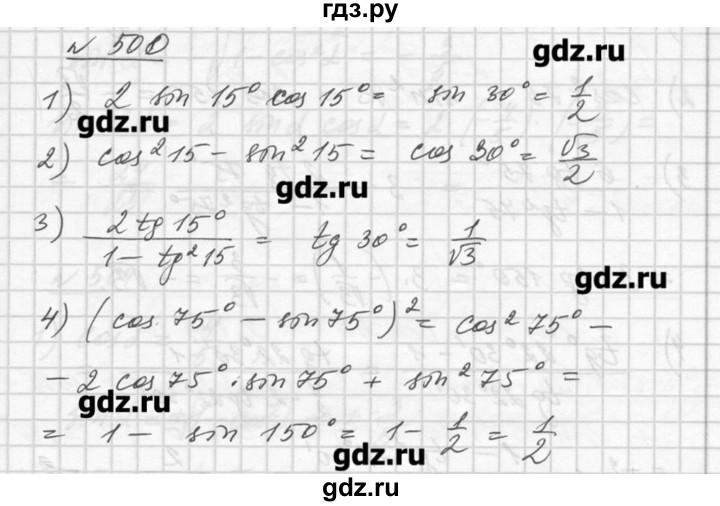 гдз.ру
№ 500
gdz.ru
1) 2 sin 15° cos 15° = sin 30° = 1/2
gdz.ru
2) cos² 15 - sin² 15 = cos 30° = √3/2
gdz.ru
3) 2 tg 15° / 1 - tg² 15 = tg 30° = 1/√3
gdz.ru
4) (cos 75° - sin 75°)² = cos² 75° -
- 2 cos 75° · sin 75° + sin² 75° =
gdz.ru
= 1 - sin 150° = 1 - 1/2 = 1/2
gdz.ru
gdz.ru